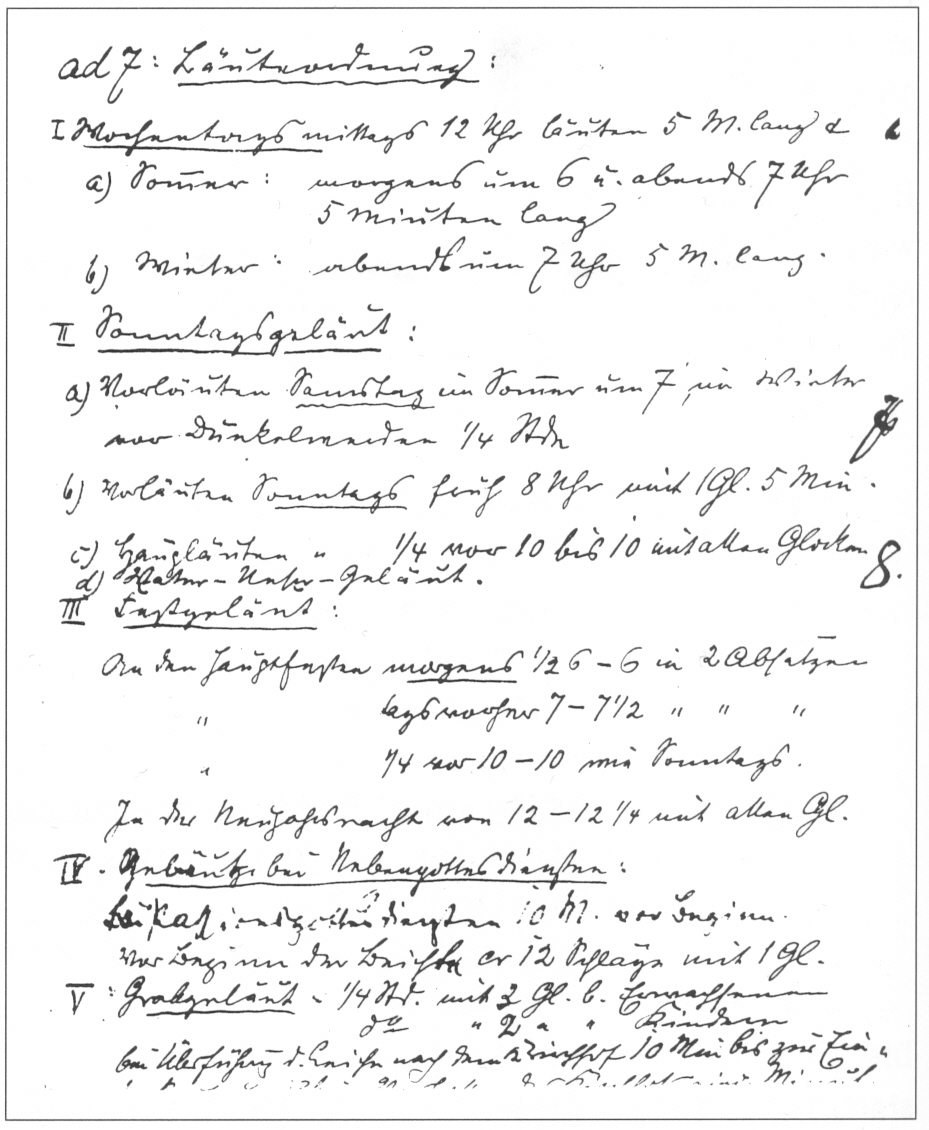 ad 7: Läuteordnung:
I Wochentags mittags 12 Uhr läuten 5 M. lang &
a) Sommer: morgens um 6 u. abends 7 Uhr
5 Minuten lang
b) Winter: abends um 7 Uhr 5 M. lang.
II Sonntagsgeläut:
a) Vorläuten Samstag im Sommer um 7, im Winter
vor Dunkelwerden 1/4 Stdn
b) Vorläuten Sonntags früh 8 Uhr mit 1 Gl. 5 Min.
c) Hauptläuten " 1/4 vor 10 bis 10 mit allen Glocken
8.
d) Vater-Unser-Geläut.
III Festgeläut:
An den Hauptfesten morgens 1/2 6 – 6 in 2 Absätzen
" tags vorher 7 – 7 1/2 " " "
" 1/4 vor 10 – 10 wie Sonntags.
In der Neujahrsnacht von 12 – 12 1/4 mit allen Gl.
IV. Geläute bei Nebengottesdiensten:
Bei Passionsgottesdiensten 10 M. vor Beginn.
Vor Beginn der Beichte 12 Schläge mit 1 Gl.
V Grabgeläut - 1/4 Std. mit 3 Gl. b. Erwachsenen
do " 2 " " Kindern
bei Überführung d. Leiche nach dem Kirchhof 10 Min bis zur